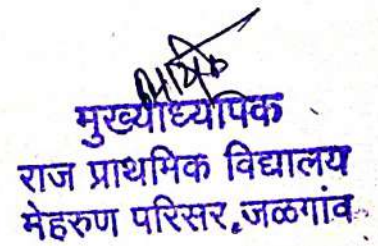 मुख्याध्यापिक
राज प्राथमिक विद्यालय
मेहरुण परिसर,जळगांव